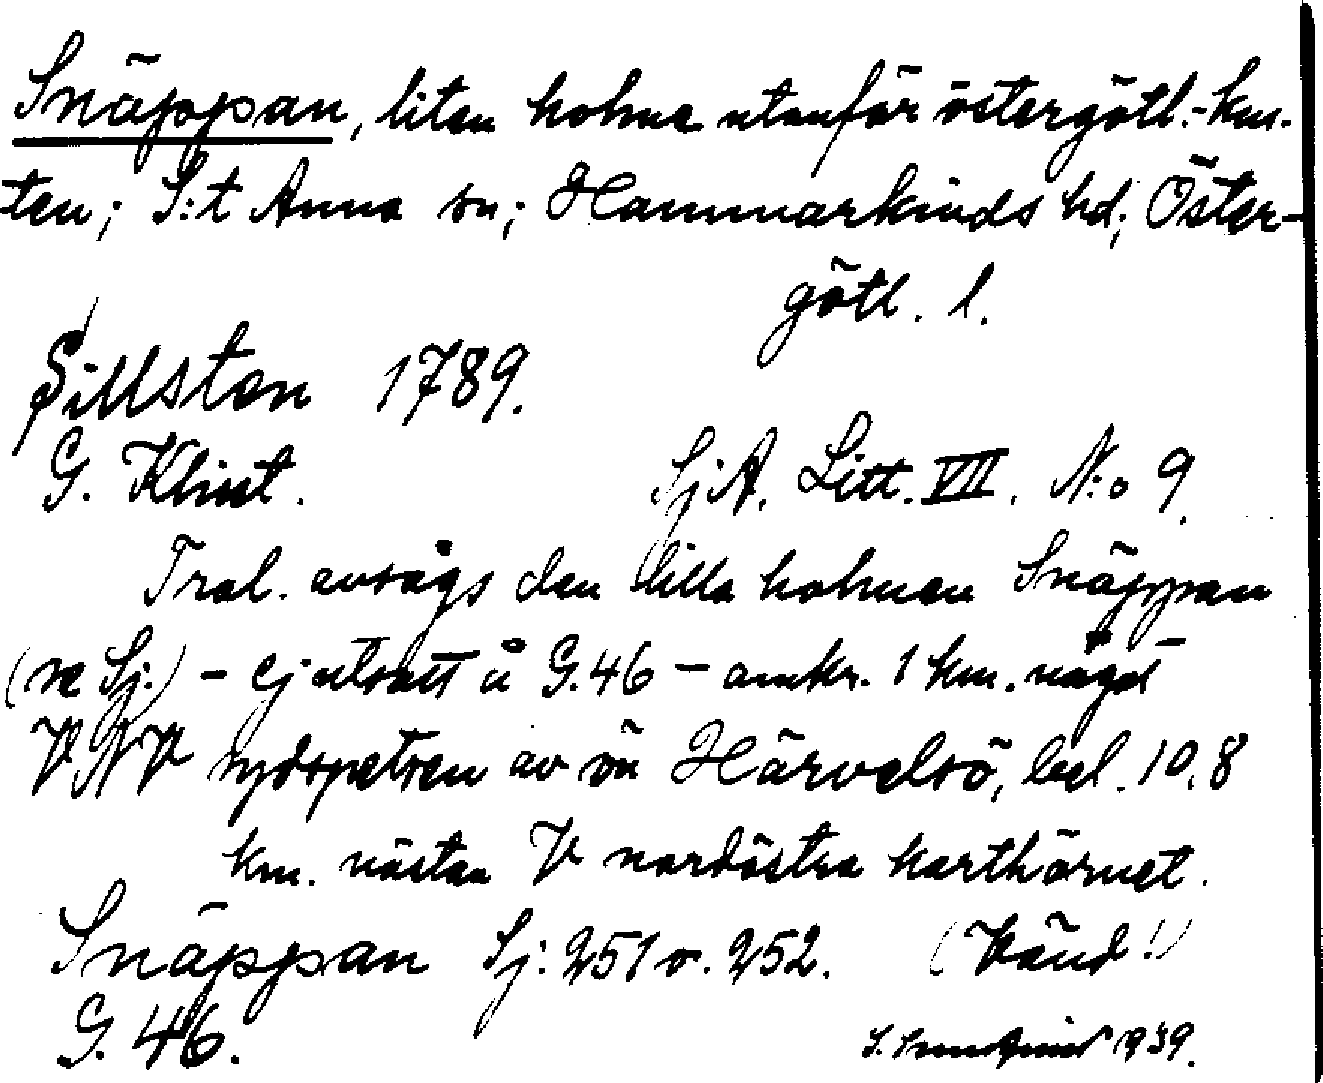 Snäppan, liten holme utanför östergötl.-kus-
ten; S:t Anna sn; Hammarkinds hd; Öster-
götl. l.
Sillsten 1789.
G. Klint. SjA. Litt. VII. N:o 9.
Trol. avsågs den lilla holmen Snäppan
(se Sj.) - ej utsatt å G.46 - omkr. 1 km. något
VNV sydspetsen av ön Härvelsö, bel. 10,8
km. nästan V nordöstra karthörnet.
Snäppan Sj: 251 o. 252. (Vänd!)
G. 46.
1939.